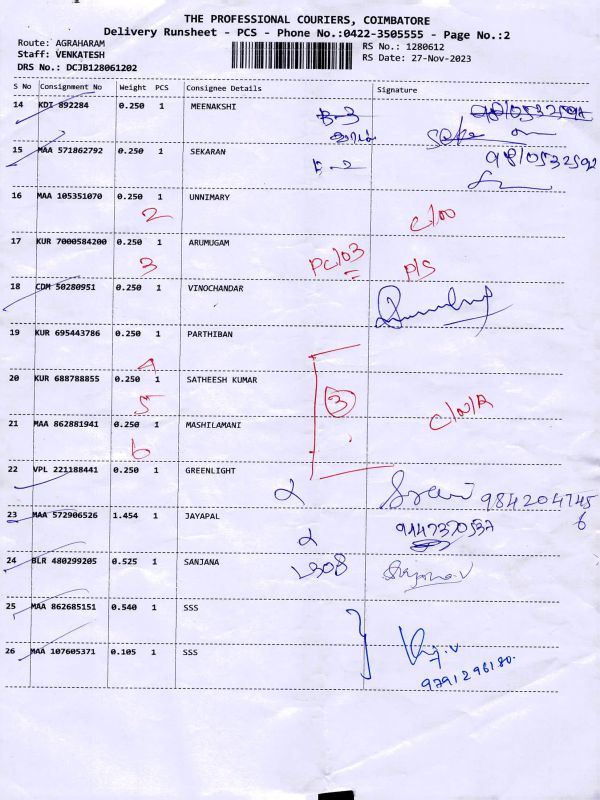 THE PROFESSIONAL COURIERS, COIMBATORE
Delivery Runsheet - PCS - Phone No.:0422-3505555 - Page No.:2
Route: AGRAHARAM RS No.: 1280612
Staff: VENKATESH RS Date: 27-Nov-2023
DRS No.: DCJB128061202
S No Consignment No Weight PCS Consignee Details Signature
14 KDI 892284 0.250 1 MEENAKSHI B-3 9810532592
15 MAA 571862792 0.250 1 SEKARAN E-2 9810532592
16 MAA 105351070 0.250 1 UNNIMARY
2 C/00
17 KUR 7000584200 0.250 1 ARUMUGAM
3 PC/03 P/S
18 CDM 50280951 0.250 1 VINOCHANDAR
19 KUR 695443786 0.250 1 PARTHIBAN
4
20 KUR 688788855 0.250 1 SATHEESH KUMAR
5 3 C/N/R
21 MAA 862881941 0.250 1 MASHILAMANI
6
22 VPL 221188441 0.250 1 GREENLIGHT
2 9842047456
23 MAA 572906526 1.454 1 JAYAPAL 9147370537
2
24 BLR 480299205 0.525 1 SANJANA Sanjana.V
25 MAA 862685151 0.540 1 SSS
26 MAA 107605371 0.105 1 SSS
9791296180.